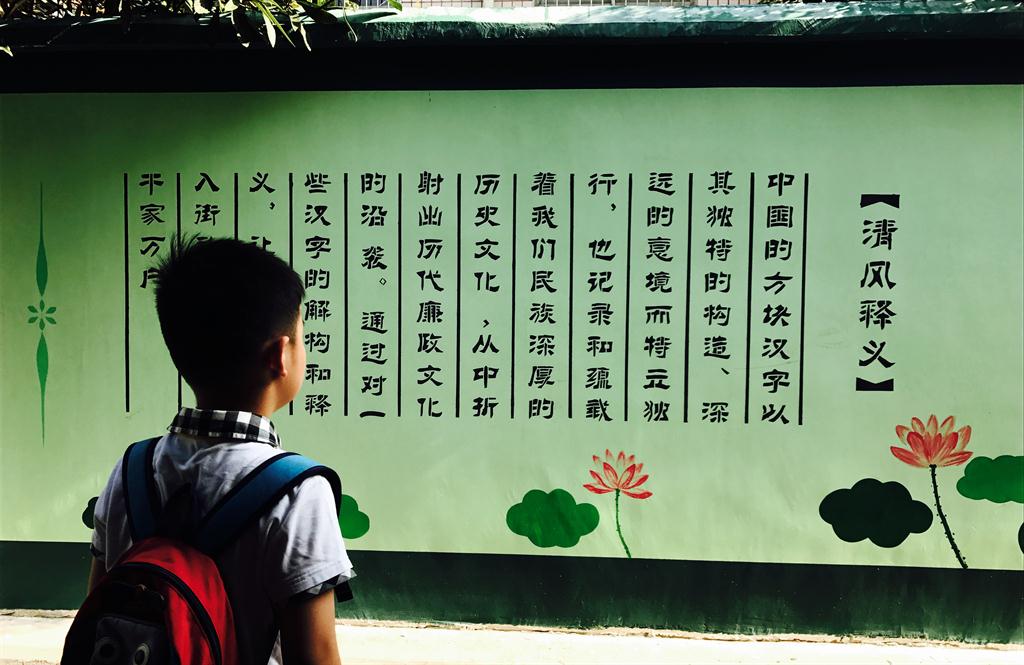 【清风释义】
中国的方块汉字以
其独特的构造、深
远的意境而特立独
行，也记录和蕴载
着我们民族深厚的
历史文化，从中折
射出历代廉政文化
的沿袭。通过对一
些汉字的解构和释
义，让
入街
千家万户